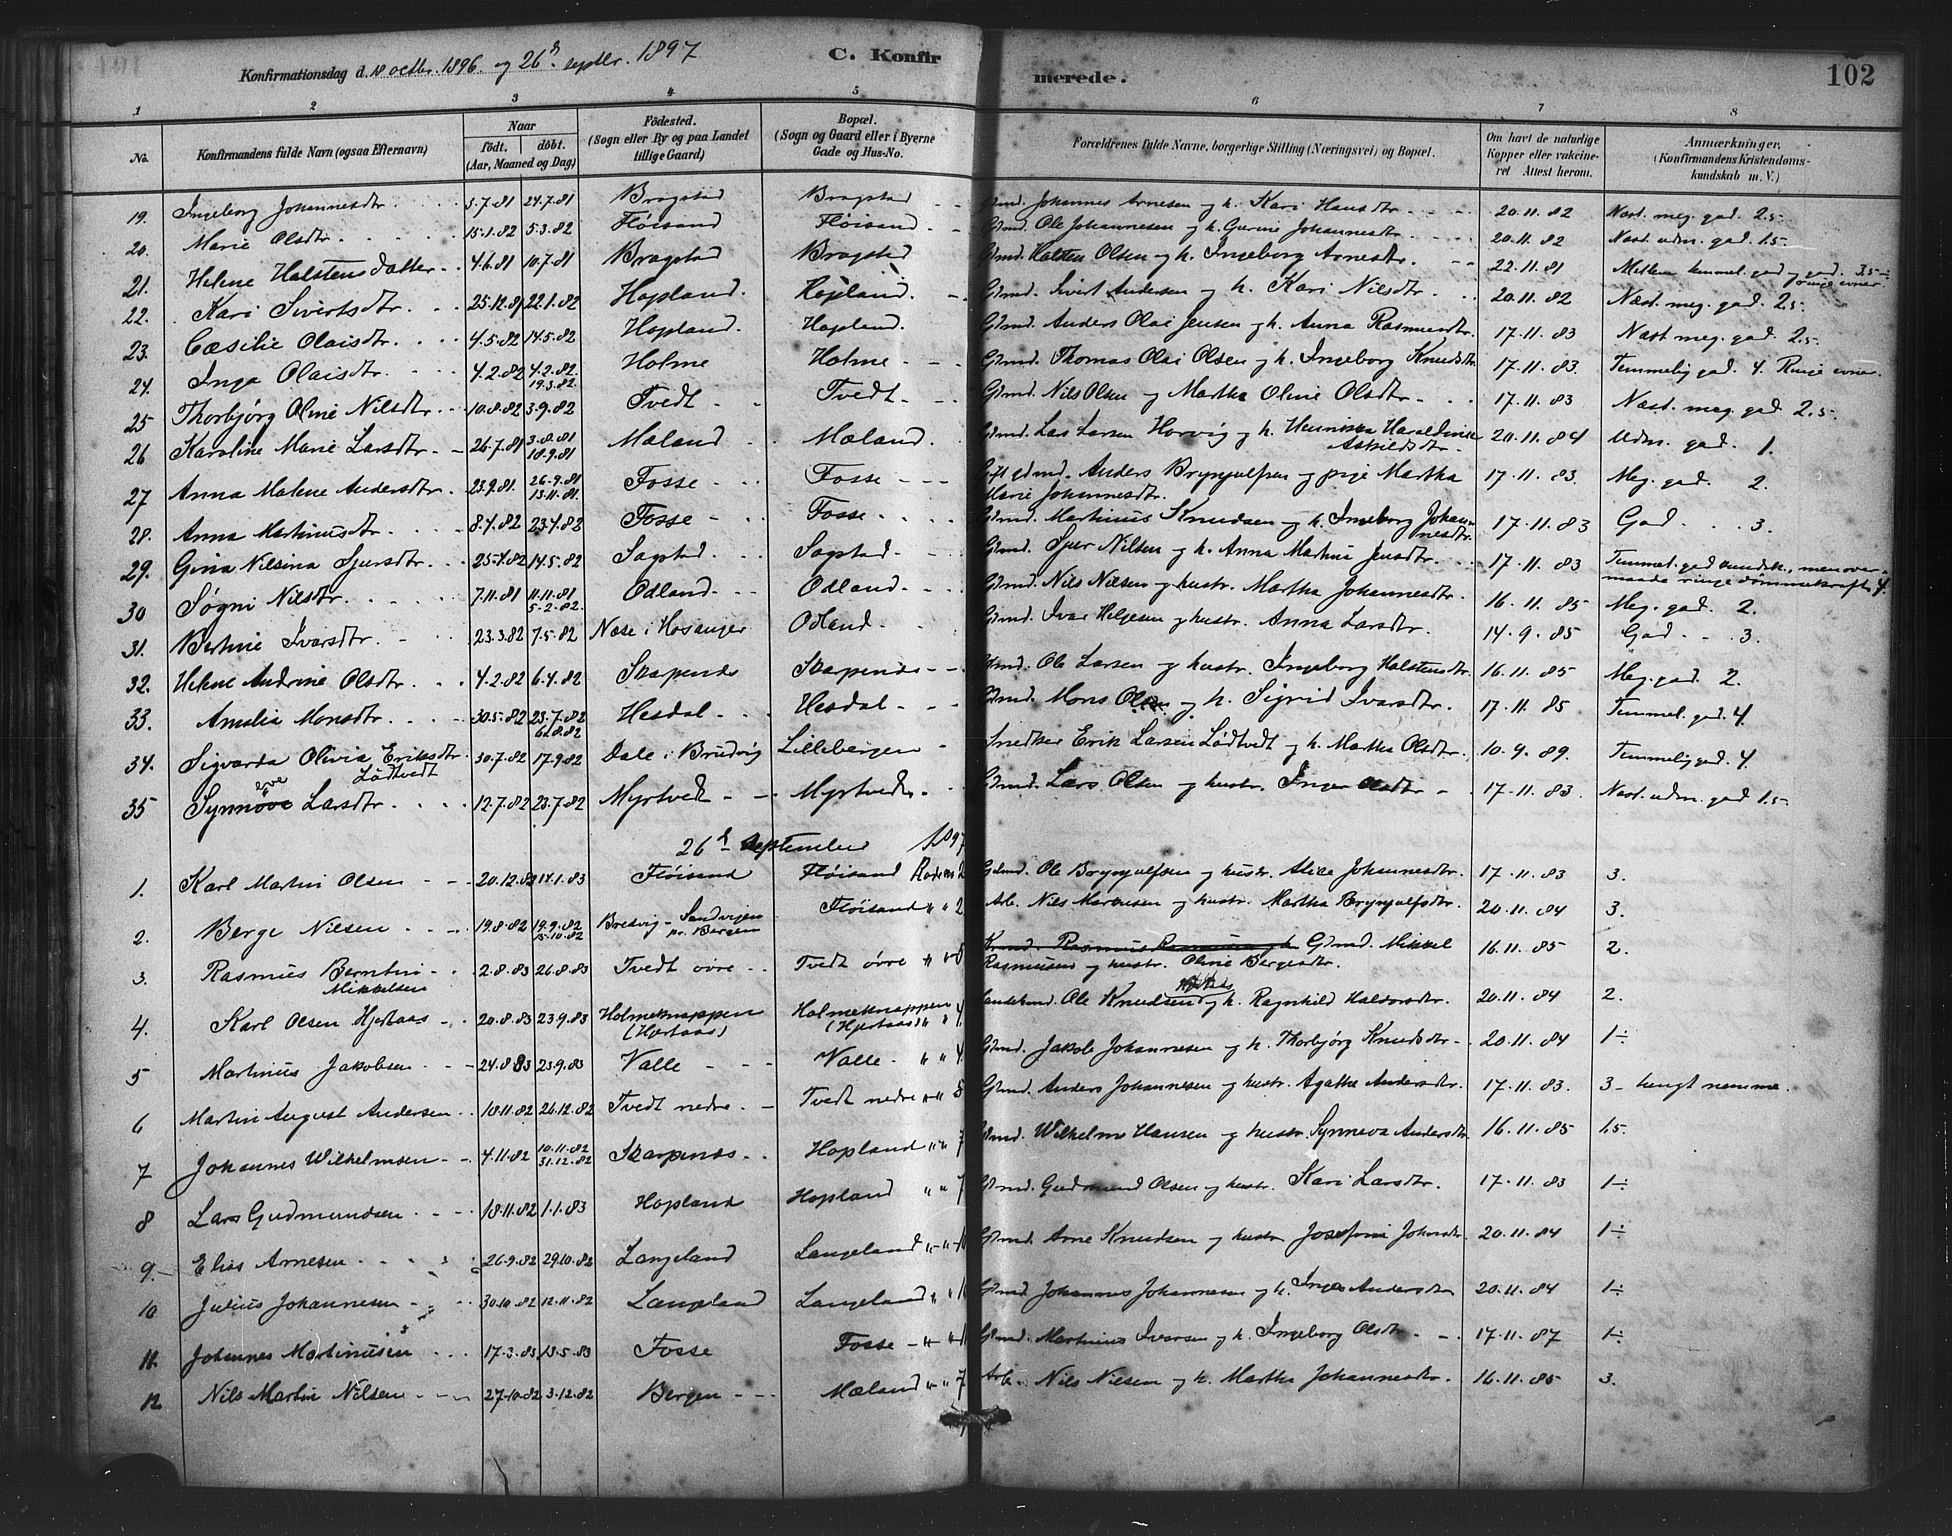 Konfirmationsdag d. 18 octbr. 1896. og 26d septbr. 1897 C. Konfirmerede. 102
1 2 3 4 5 6 7 8
No. Konfirmandens fulde Navn (ogsaa Efternavn) Naar født. døbt. (Aar, Maaned og Dag) Fødested. (Sogn eller By og paa Landet tillige Gaard) Bopæl. (Sogn og Gaard eller i Byerne Gade og Hus-No. Forældrenes fulde Navne, borgerlige Stilling (Næringsvei) og Bopæl. Om havt de naturlige Kopper eller vakcineret Attest herom. Anmærkninger, (Konfirmandens Kristendomskundskab m. V.)
19. Ingeborg Johannesdtr. 3.7.81 24.7.81 Bragstad Bragstad Gbmd. Johannes Arnesen og h. Kari Hansdtr. 20.11.82 Næst. meg. god. 2.5
20. Marie Olsdtr. 15.1.82 5.3.82 Fløisand Fløisand. Gbmd. Ole Johannesen og h. Gurine Johannesdtr. 20.11.82 Næst. udm. god. 1.5
21. Helene Halstensdatter 4.6.81 10.7.81 Bragstad Bragstad Gbmd. Halsten Olsen og h. Ingeborg Arnesdtr. 22.11.81 Mellem temmel. god og god. 3.5 ÷ ringe evner.
22. Kari Sivertsdtr. 25.12.81 22.1.82 Hopland. Hopland. Gbmd. Sivert Andersen og h. Kari Nilsdtr. 20.11.82 Næst. meg. god. 2.5
23. Cæsilie Olaisdtr. 4.5.82 14.5.82 Hopland. Hopland. Gbmd. Anders Olai Jensen og h. Anna Rasmusdtr. 17.11.83 Næst. meg. god. 2.5
24. Inga Olaisdtr. 4.2.82 4.2.82. 19.3.82. Holme Holme Gbmd. Thomas Olai Olsen og h. Ingeborg Knudsdtr. 17.11.83. Temmelig god. 4. Ringe evner.
25 Thorbjørg Oline Nilsdtr. 10.8.82 3.9.82 Tvedt Tvedt Gbmd. Nils Olsen og Martha Oline Olsdtr. 17.11.83 Næst. meg. god. 2.5
26 Karoline Marie Larsdtr. 26.7.81 3.8.81 18.9.81 Mæland Mæland. Gbmd. Lars Larsen Horvig og h. Haraldine Askildsdtr. 20.11.84 Udm. god. 1.
27 Anna Malene Andersdtr. 23.9.81. 26.9.81 13.11.81. Fosse Fosse Gift gbmd. Anders Brynjulfsen og pige Martha Marie Johannesdtr. 17.11.83. Meg. god. 2.
28. Anna Martinusdtr. 8.4.82 23.4.82 Fosse Fosse Gbmd. Martinus Knudsen og h. Ingeborg Johannesdtr. 17.11.83 God. 3.
29. Gina Nilsina Sjursdtr. 25.4.82 14.5.82 Sagstad. Sagstad. Gbmd. Sjur Nilsen og h. Anna Martine Jensdtr. 17.11.83 Temmel. god kundsk., men overmaade ringe dømmekraft. 4.
30 Søgni Nilsdtr. 7.11.81 11.11.81 5.2.82. Odland. Odland. Gbmd. Nils Nilsen og hustr. Martha Johannesdtr. 16.11.85 Meg. god. 2.
31. Bertine Ivarsdtr. 23.3.82 7.5.82 Næse i Hosanger Odland Gbmd. Ivar Helgesen og hustr. Anna Larsdtr. 14.9.85 God. 3.
32. Helene Andrine Olsdtr. 4.2.82 6.4.82 Skapenæs Skarpenæs Gbmd. Ole Larsen og hustr. Ingeborg Halstensdtr. 16.11.85 Meg. god. 2.
33. Amalia Monsdtr. 30.5.82 23.7.82 6.8.82 Hesdal Hesdal Gbmd. Mons Olsen og h. Sigrid Ivarsdtr. 17.11.85 Temmel. god. 4.
34. Sigvarda Olivia Eriksdtr. Lødtvedt 30.7.82 17.9.82 Dale i Brudvig Lillebergen Snedker Erik Larsen Lødtvedt og h. Martha Olsdtr. 10.9.89. Temmelig god. 4.
35 Synnøve Larsdtr. 12.7.82 23.7.82 Myrtved Myrtvedt Gbmd. Lars Olsen og hustr. Inger Olsdtr 17.11.83. Næst. udm. god 1.5
26d September 1897
1. Karl Martin Olsen 20.12.82 14.1.83 Fløisand Fløisand Rodens 2 Gbmd. Ole Brynjulfsen og hustr. Alice Johannesdtr. 17.11.83 3.
2. Berge Nilsen 19.8.82 19.9.82 15.10.82 Bredvig - Sandvigen pr. Bergen Fløisand " " 2 Arb. Nils Markusen og hustr. Martha Brynjulfsdtr. 20.11.84 3.
3. Rasmus Berntin Mikkelsen 2.8.83 26.8.83 Tvedt øvre Tvedt øvre " " 5 Gbmd. Mikkel Rasmussen og hustr. Oline Bergesdtr. 16.11.85 2.
4. Karl Olsen Hjertaas 20.8.83 23.9.83 Holmeknappen (Hjertaas) Holmeknappen (Hjertaas) " " 4. Ole Knudsen og h. Ragnhild Haldorsdtr. 20.11.84 2.
5 Martinus Jakobsen 24.8.83 23.9.83 Valle Valle " " 4. Gbmd. Jakob Johannesen og h. Thorbjørg Knudsdtr. 20.11.84 1÷
6 Martin August Andersen 18.11.82 26.12.82 Tvedt nedre. Tvedt nedre " " 5 Gbmd. Anders Johannesen og hustr. Agathe Andersdtr. 17.11.83. 3 - tungt nemme.
7 Johannes Wilhelmsen 4.11.82 10.11.82 31.12.82 Skarpenæs Hopland " " 7 Gbmd. Wilhelm Hansen og hustr. Synneva Andersdtr. 16.11.85 1.5
8 Lars Gudmundsen 18.11.82 1.1.83 Hopland Hopland " " 7 Gbmd. Gudmund Olsen og hustr. Kari Larsdtr. 17.11.83 1÷
9. Elias Arnesen 26.9.82 29.10.82 Langeland Langeland " " Gbmd. Arne Knudsen og hustr. Josefine Johnsdtr. 20.11.84 1÷
10 Julius Johannesen 30.10.82 12.11.82 Langeland Langeland " " Gbmd Johannes Johannesen og h. Inger Andersdtr 20.11.84 1÷
11. Johannes Martinusen 17.3.83 13.5.83 Fosse Fosse " " Gbmd. Martinus Ivarsen og h. Ingeborg Olsdtr. 17.11.87 1÷
12 Nils Martin Nilsen 27.10.82 3.12.82 Bergen Mæland " " 7 Arb. Nils Nilsen og h. Martha Johannesdtr. 16.11.85 3.